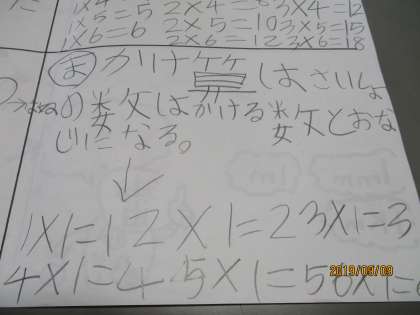 1×5=5 2×5=10 3×5=15
1×6=6 2×6=12 3×6=18
かけ算はさいしょ
の数はかける数とおな
じになる。
1×1=1 2×1=2 3×1=3
4×1=4 5×1=5 6×1=
2019/09/09